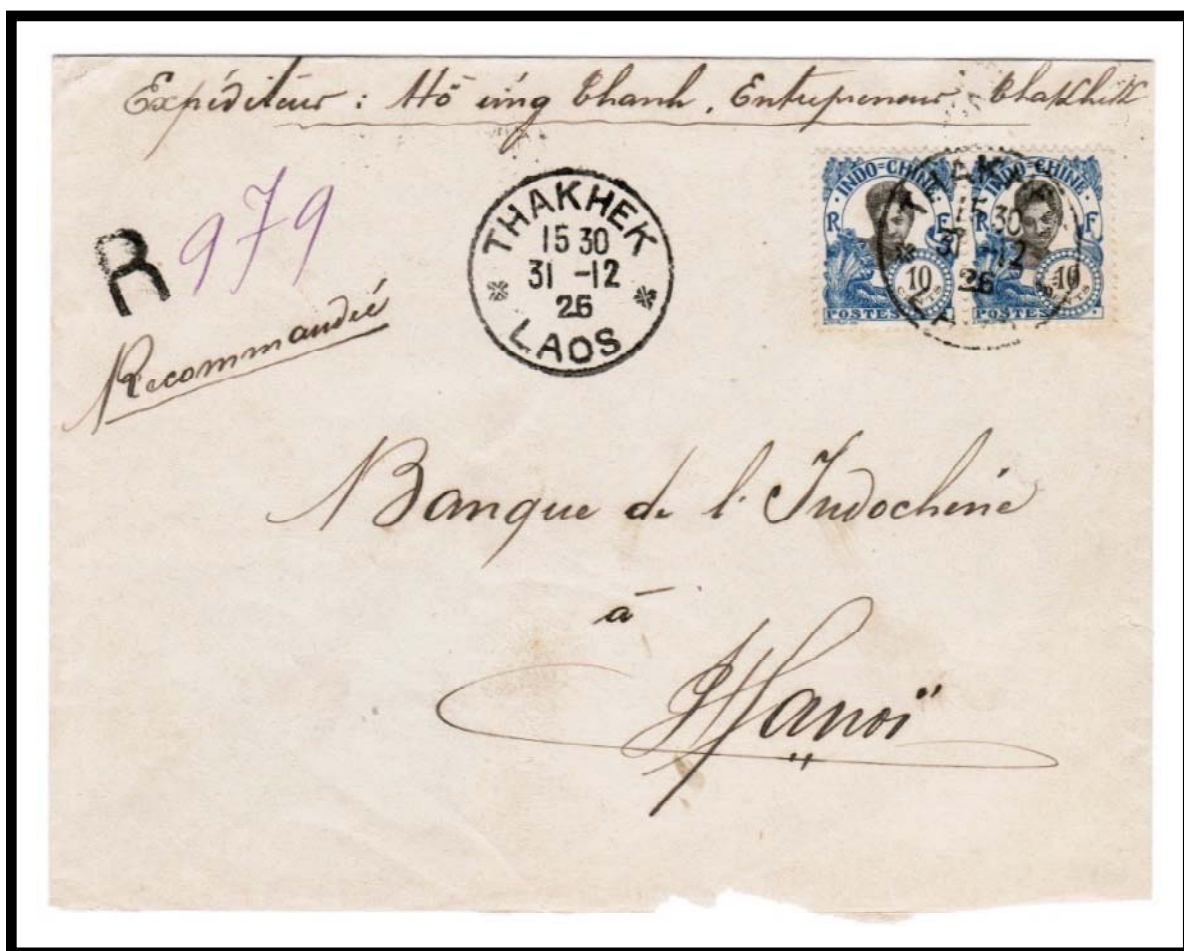 Expéditeur : Hô ứng Chanh, Entrepreneur Thakhek
R 979
Recommandée
THAKHEK
15 30
31 -12
26
LAOS
INDO=CHINE
R F
10
CENTS
POSTES
INDO=CHINE
R F
10
CENTS
POSTES
THAK
15 30
31 -12
26
LAOS
Banque de l'Indochine
à
Hanoï